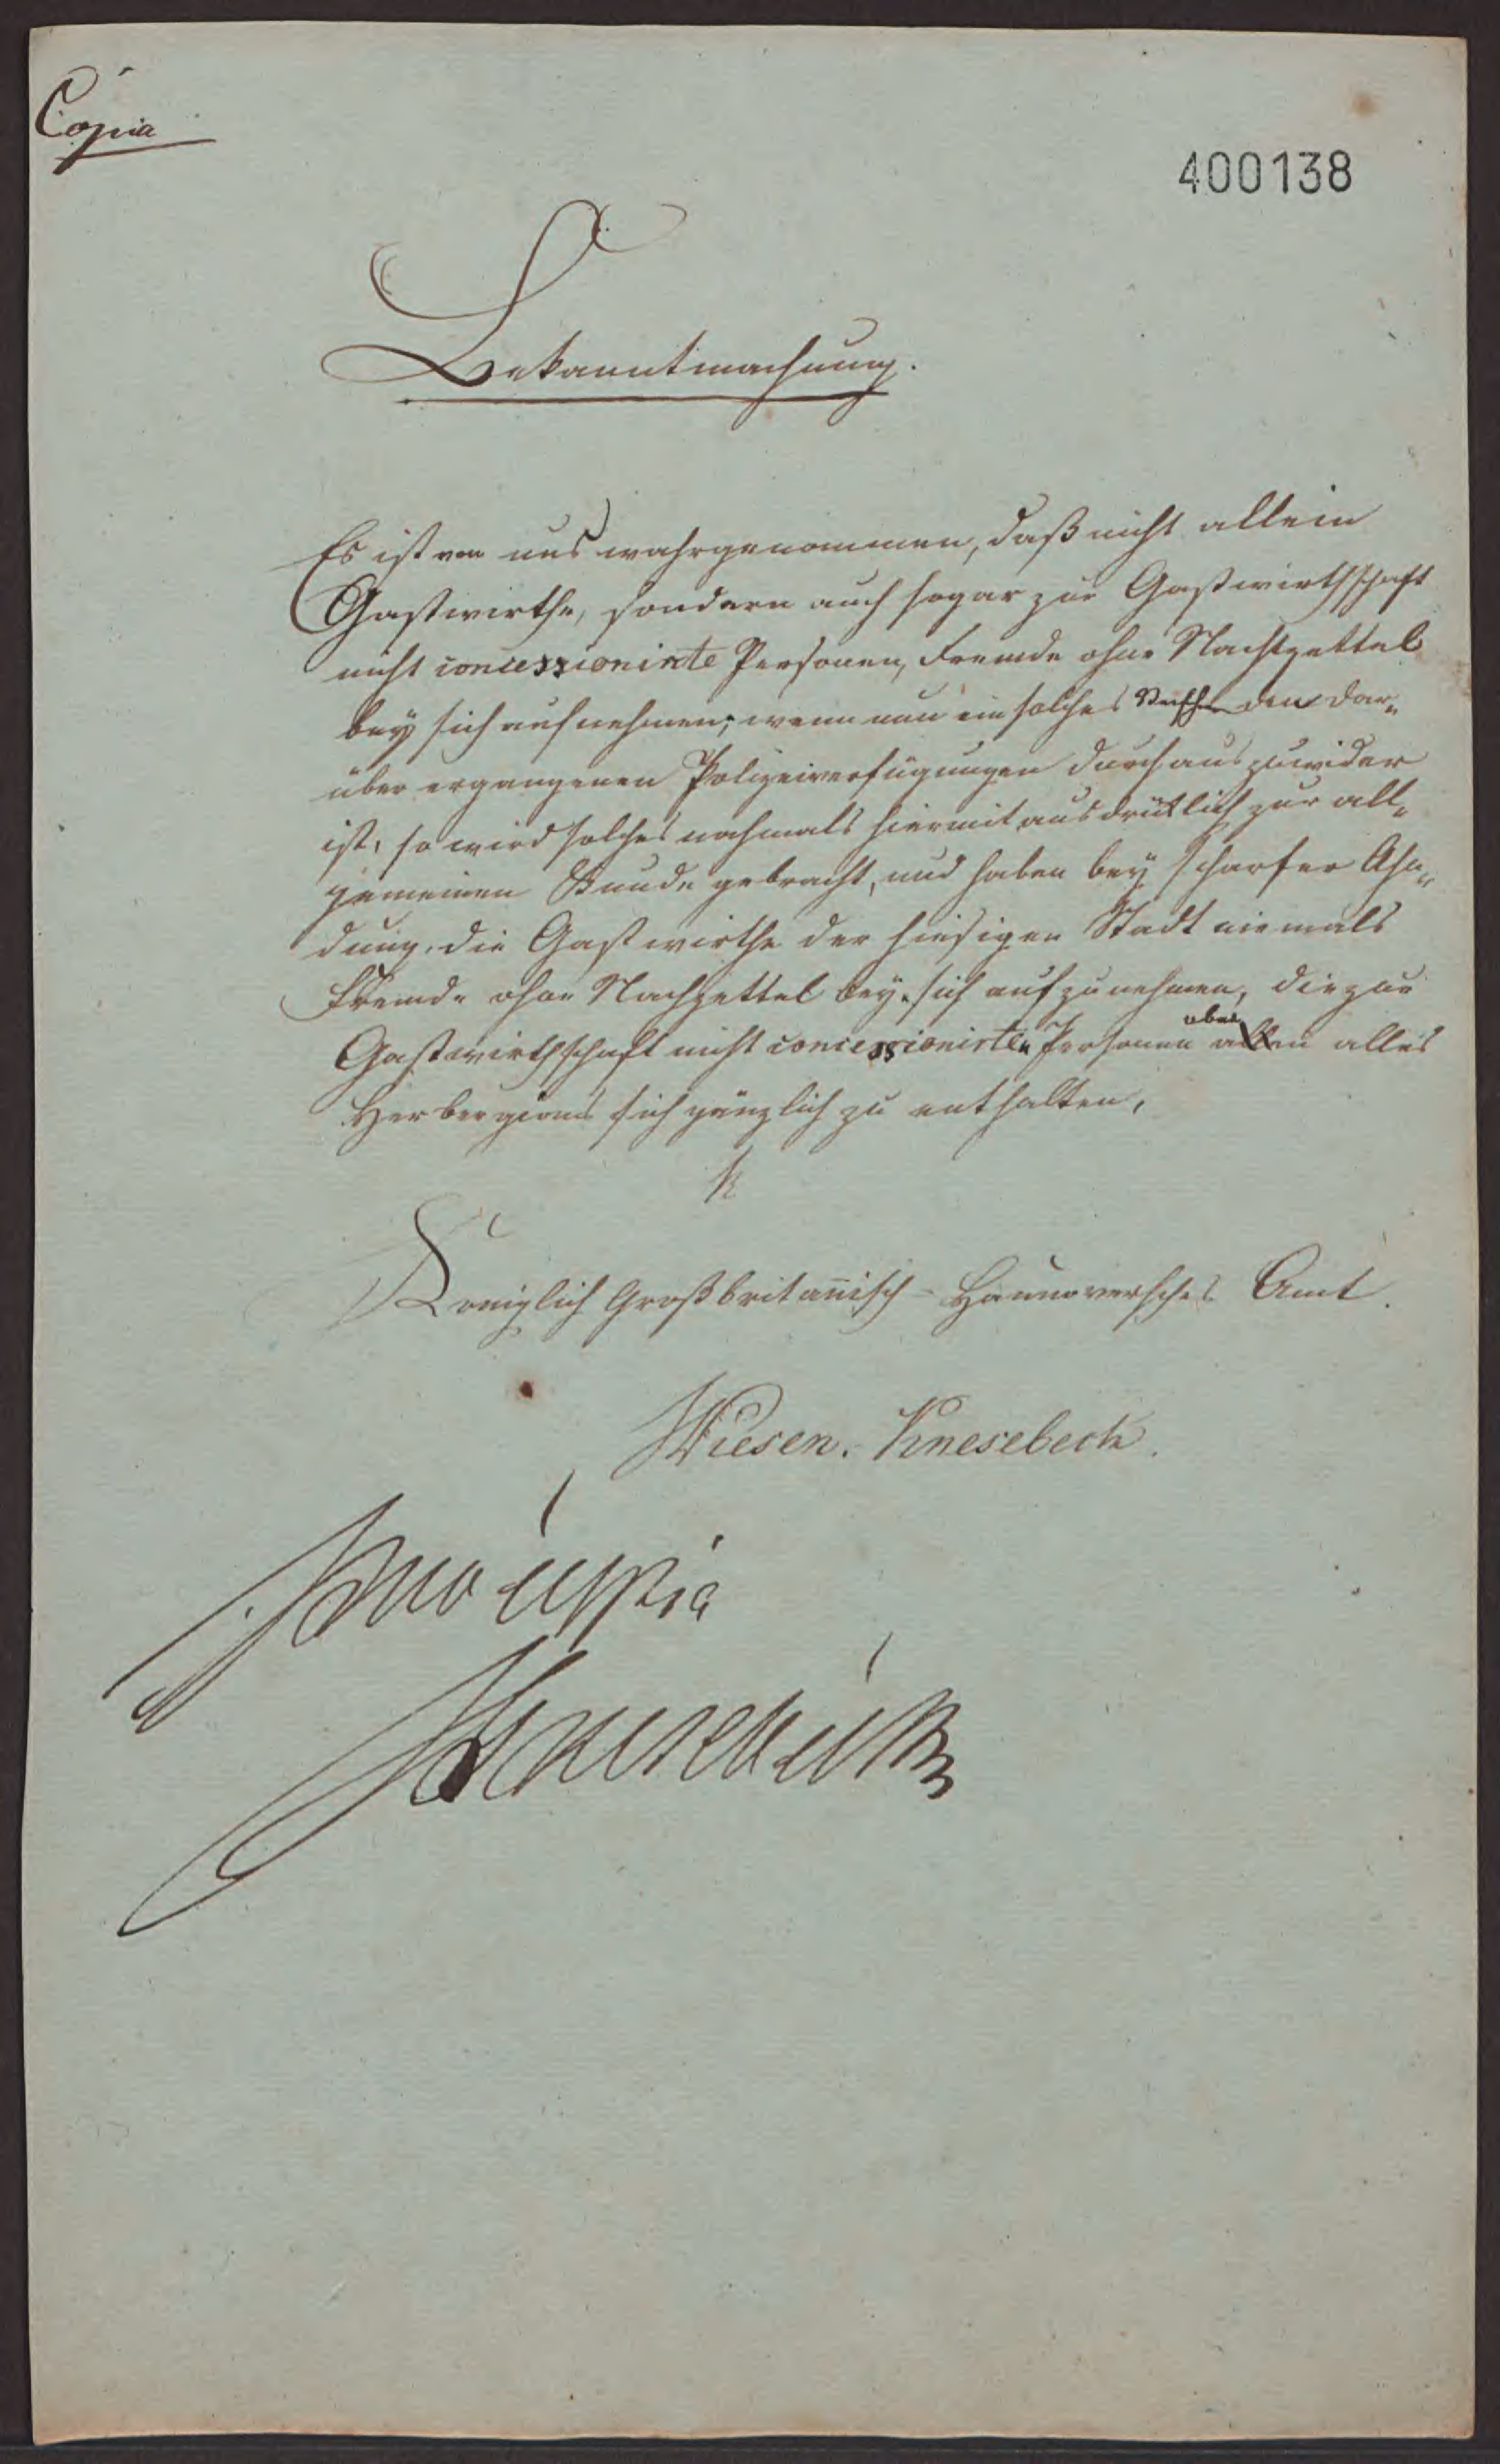 Copia
400138
Bekanntmachung.
Es ist von uns wahrgenommen, daß nicht allein
Gastwirthe, sondern auch sogar zur Gastwirthschaft
nicht concessionirte Personen, Fremde ohne Nachtzettel
bey sich aufnehmen; wenn nun ein solches den dar„
über ergangenen Polizeiverfügungen durchaus zuwider
ist, so wird solches nochmals hiermit ausdrücklich zur all„
gemeinen Kunde gebracht, und haben bey scharfer Ahn„
dung, die Gastwirthe der hiesigen Stadt niemals
Fremde ohne Nachzettel bey sich aufzunehmen, die zur
Gastwirthschaft nicht concessionirten Personen aber alles
Herbergirens sich gänzlich zu enthalten,
Koniglich Großbritan̄isch-Hannoversches Amt.
Wiesen. Knesebeck.
pro copia